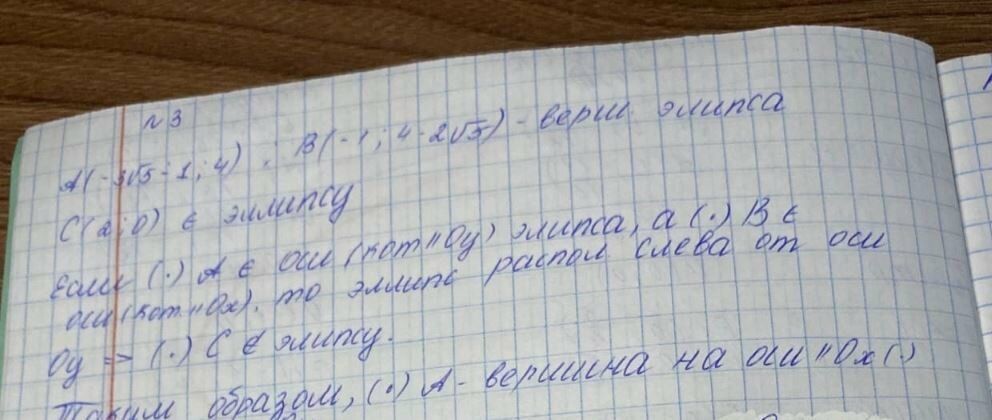 №3
A(-3√5-1; 4) ; B(-1; 4-2√5) - верш. элипса
C(2; 0) ∈ эллипсу
Если (·) A ∈ оси (кот || Oy) элипса, а (·) B ∈
оси (кот || Ox), то эллипс распол слева от оси
Oy => (·) C ∉ элипсу.
Таким образом, (·) A - вершина на оси || Ox (·)